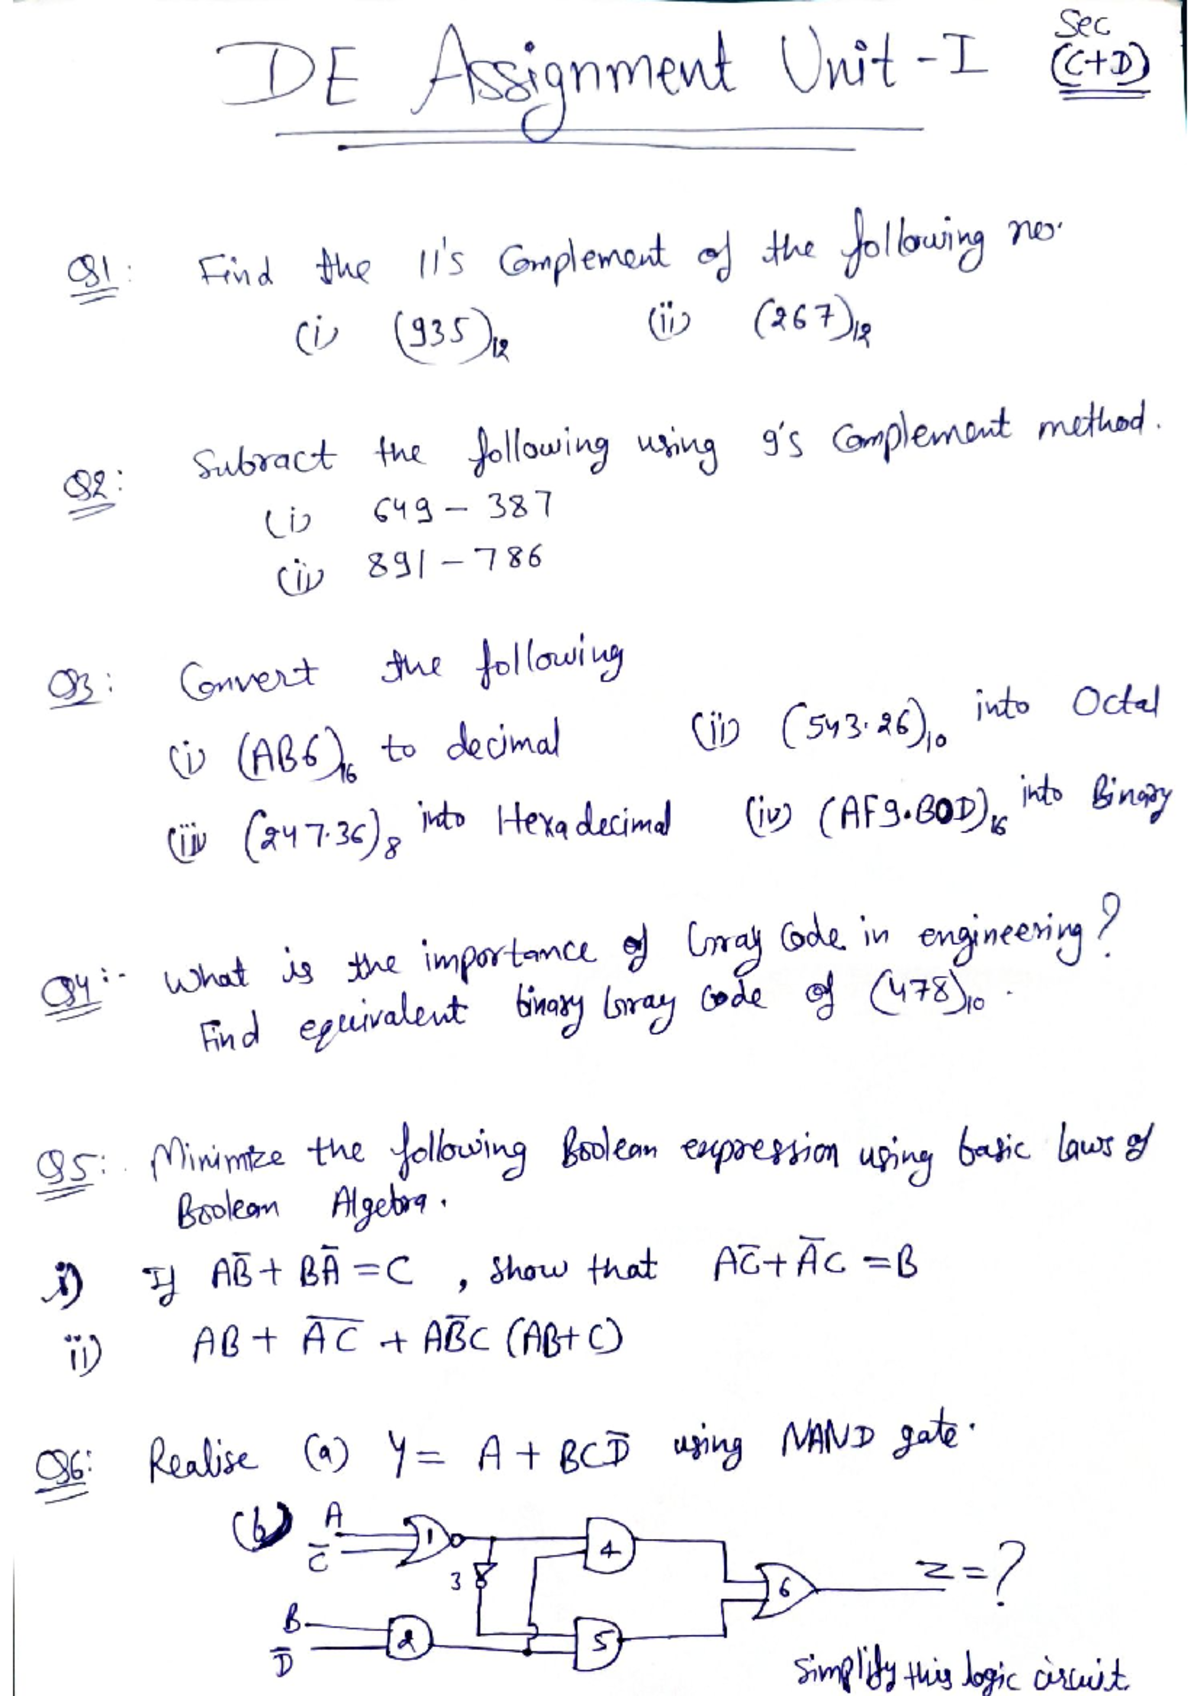 DE Assignment Unit - I
Sec
(C+D)
Q1: Find the 11's Complement of the following no.
(i) (935)₁₂ (ii) (267)₁₂
Q2: Subract the following using 9's Complement method.
(i) 649 - 387
(ii) 891 - 786
Q3: Convert the following
(i) (AB6)₁₆ to decimal (ii) (543.26)₁₀ into Octal
(iii) (247.36)₈ into Hexadecimal (iv) (AF9.B0D)₁₆ into Binary
Q4:- What is the importance of Gray Code in engineering?
Find equivalent binary Gray Code of (478)₁₀.
Q5: Minimize the following Boolean expression using basic laws of
Boolean Algebra.
i) If AB̅ + BA̅ = C , Show that AC̅ + A̅C = B
ii) AB + A̅C̅ + AB̅C (AB+C)
Q6: Realise (a) Y = A + BCD̅ using NAND gate.
(b) A
C̅
1
4
3
6
z = ?
B
D̅
2
5
Simplify this logic circuit.